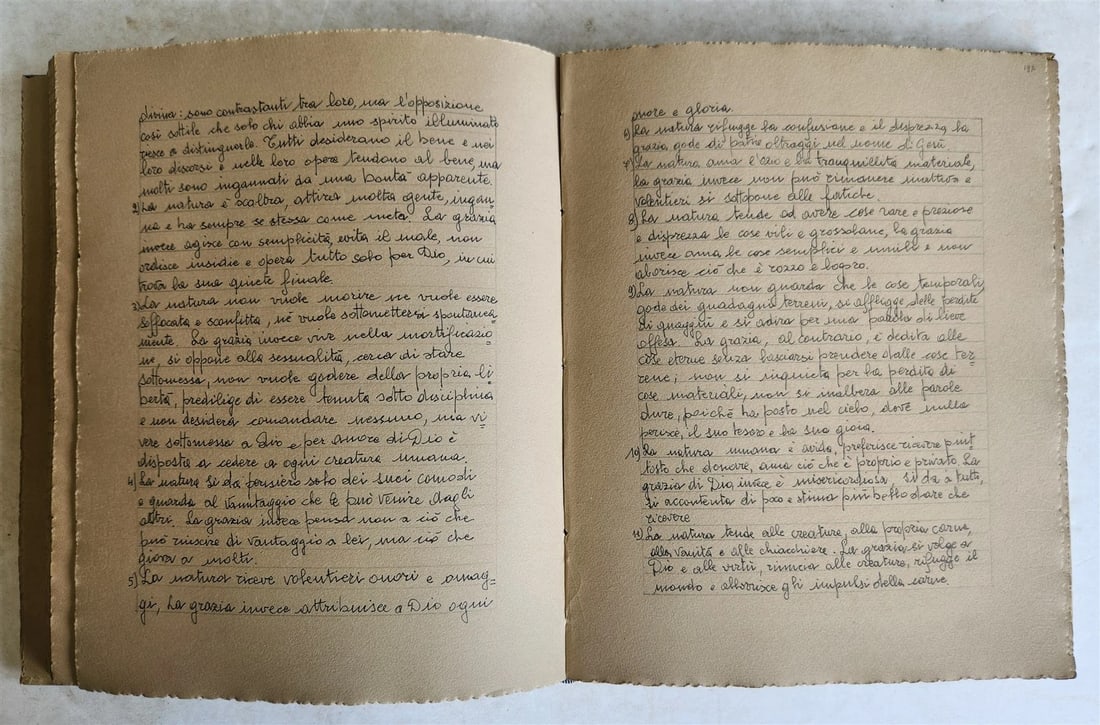 divina: sono contrastanti tra loro, ma l'opposizione
così sottile che solo chi abbia uno spirito illuminato
riesce a distinguerlo. Tutti desiderano il bene e nei
loro discorsi e nelle loro opere tendono al bene, ma
molti sono ingannati da una bontà apparente.
2) La natura è scaltra, attira molta gente, ingan=
na e ha sempre se stessa come meta. La grazia
invece agisce con semplicità, evita il male, non
ordisce insidie e opera tutto solo per Dio, in cui
trova la sua quiete finale.
3) La natura non vuole morire ne vuole essere
soffocata e sconfitta, nè vuole sottomettersi spontanea
mente. La grazia invece vive nella mortificazio=
ne, si oppone alla sensualità, cerca di stare
sottomessa, non vuole godere della propria li=
bertà, predilige di essere tenuta sotto disciplina
e non desidera comandare nessuno, ma vi=
vere sottomessa a Dio e per amore di Dio è
disposta a cedere a ogni creatura umana.
4) La natura si da pensiero solo dei suoi comodi
e guarda al vantaggio che le può venire dagli
altri. La grazia invece pensa non a ciò che
può riuscire di vantaggio a lei, ma ciò che
giova a molti.
5) La natura riceve volentieri onori e omag=
gi, la grazia invece attribuisce a Dio ogni
192
onore e gloria.
6) La natura rifugge la confusione e il disprezzo la
grazia gode di patire oltraggi nel nome di Gesù.
7) La natura ama l'ozio e la tranquillità materiale,
la grazia invece non può rimanere inattiva e
volentieri si sottopone alle fatiche.
8) La natura tende ad avere cose rare e preziose
e disprezza le cose vili e grossolane, la grazia
invece ama le cose semplici e umili e non
aborisce ciò che è rozzo e logoro.
9) La natura non guarda che le cose temporali,
gode dei guadagni terreni, si affligge delle perdite
di quaggiù e si adira per una parola di lieve
offesa. La grazia, al contrario, è dedita alle
cose eterne senza lasciarsi prendere dalle cose ter=
rene; non si inquieta per la perdita di
cose materiali, non si inalbera alle parole
dure, poichè ha posto nel cielo, dove nulla
perisce, il suo tesoro e la sua gioia.
10) La natura umana è avida, preferisce ricevere piut=
tosto che donare, ama ciò che è proprio e privato. La
grazia di Dio invece è misericordiosa, si da a tutti,
si accontenta di poco e stima più bello dare che
ricevere
11) La natura tende alle creature, alla propria carne,
alla vanità e alle chiacchiere. La grazia si volge a
Dio e alle virtù, rinuncia alle creature, rifugge il
mondo e abborrisce gli impulsi della carne.